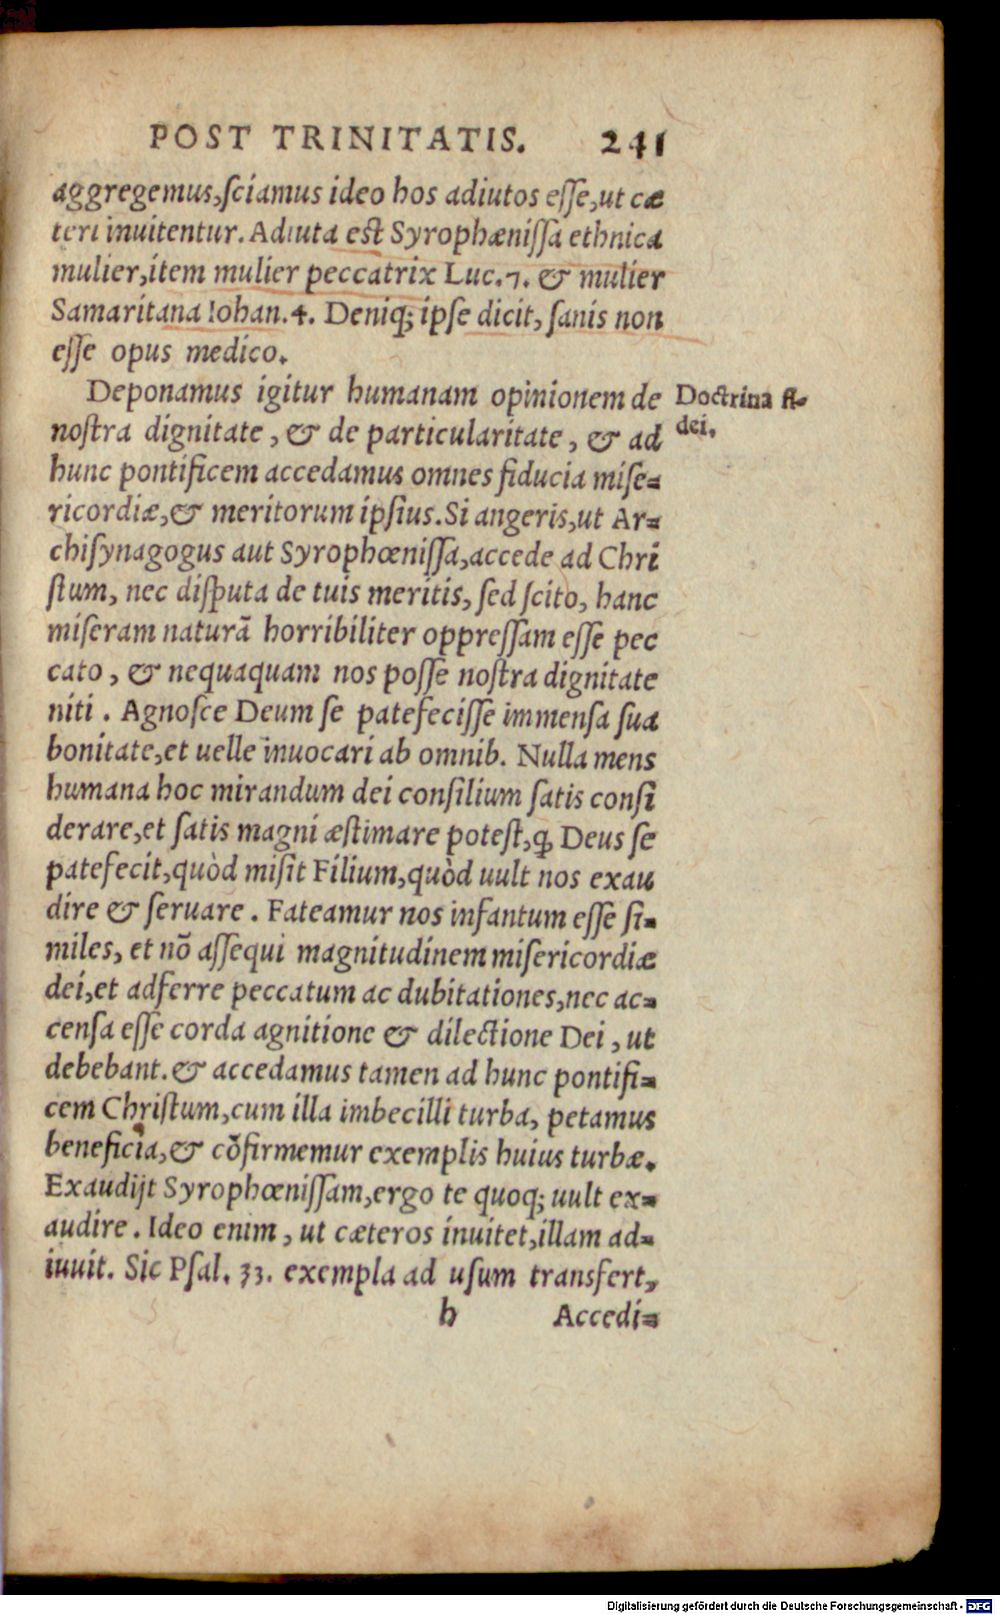 POST TRINITATIS. 241
aggregemus,sciamus ideo hos adiutos esse,ut cæ
teri inuitentur. Adiuta est Syrophænissa ethnica
mulier,item mulier peccatrix Luc.7. & mulier
Samaritana Iohan.4. Deniq; ipse dicit, sanis non
esse opus medico.
Deponamus igitur humanam opinionem de
Doctrina fi-
nostra dignitate, & de particularitate, & ad
dei.
hunc pontificem accedamus omnes fiducia mise=
ricordiæ,& meritorum ipsius. Si angeris,ut Ar=
chisynagogus aut Syrophœnissa,accede ad Chri
stum, nec disputa de tuis meritis, sed scito, hanc
miseram naturā horribiliter oppressam esse pec
cato, & nequaquam nos posse nostra dignitate
niti. Agnosce Deum se patefecisse immensa sua
bonitate,et uelle inuocari ab omnib. Nulla mens
humana hoc mirandum dei consilium satis consi
derare,et satis magni æstimare potest,ꝙ Deus se
patefecit,quòd misit Filium,quòd uult nos exau
dire & seruare. Fateamur nos infantum esse si=
miles, et nō assequi magnitudinem misericordiæ
dei,et adferre peccatum ac dubitationes,nec ac=
censa esse corda agnitione & dilectione Dei, ut
debebant. & accedamus tamen ad hunc pontifi=
cem Christum,cum illa imbecilli turba, petamus
beneficia,& cōfirmemur exemplis huius turbæ.
Exaudijt Syrophœnissam,ergo te quoq; uult ex=
audire. Ideo enim, ut cæteros inuitet,illam ad=
iuuit. Sic Psal. 33. exempla ad usum transfert,
h Accedi=
Digitalisierung gefördert durch die Deutsche Forschungsgemeinschaft - DFG